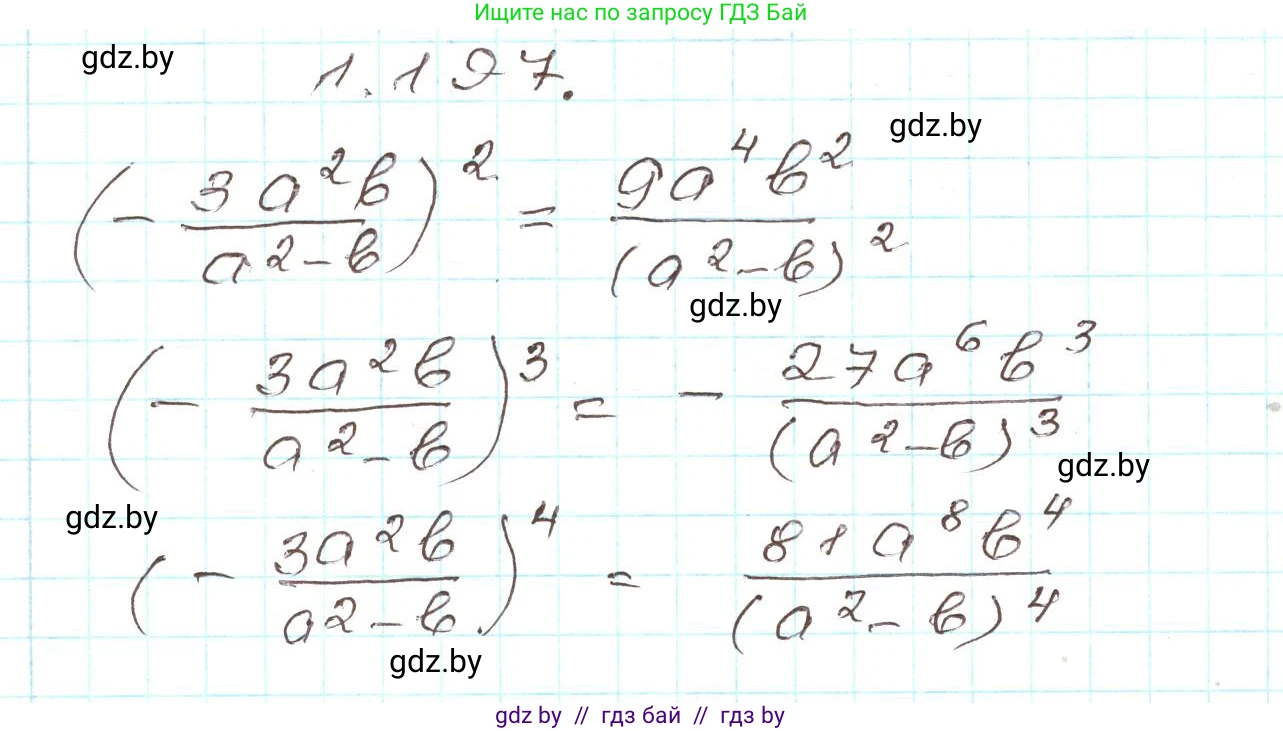 Ищите нас по запросу ГДЗ Бай
gdz.by
1.197.
gdz.by
(- 3a²b / a²-b)² = 9a⁴b² / (a²-b)²
gdz.by
(- 3a²b / a²-b)³ = - 27a⁶b³ / (a²-b)³
gdz.by
gdz.by
(- 3a²b / a²-b)⁴ = 81a⁸b⁴ / (a²-b)⁴
gdz.by
gdz.by // гдз бай // гдз by